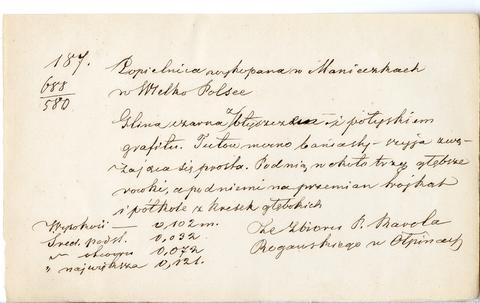 187.
688
580
Popielnica wykopana w Manieczkach
w Wielko Polsce
Glina czarna z błyszcz i połyskiem
grafitu. Tułów mocno bańiasty – szyja zwę-
żająca się prosta. Pod nią w około trzy głębsze
rowki, a pod niemi na przemian trójkąt
i półkole z kresek głębokich
Wysokość — 0,102 m.
Śred. podst. 0,032
" otworu 0,072
" największa 0,121.
Ze Zbioru P. Karola
Rogawskiego w Ołpinach